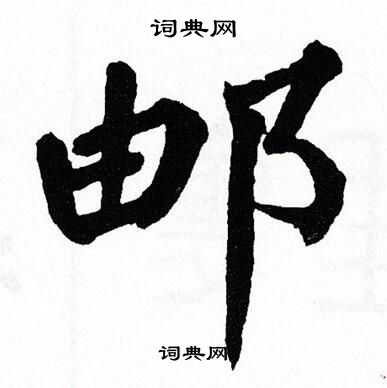 词典网
邮
词典网